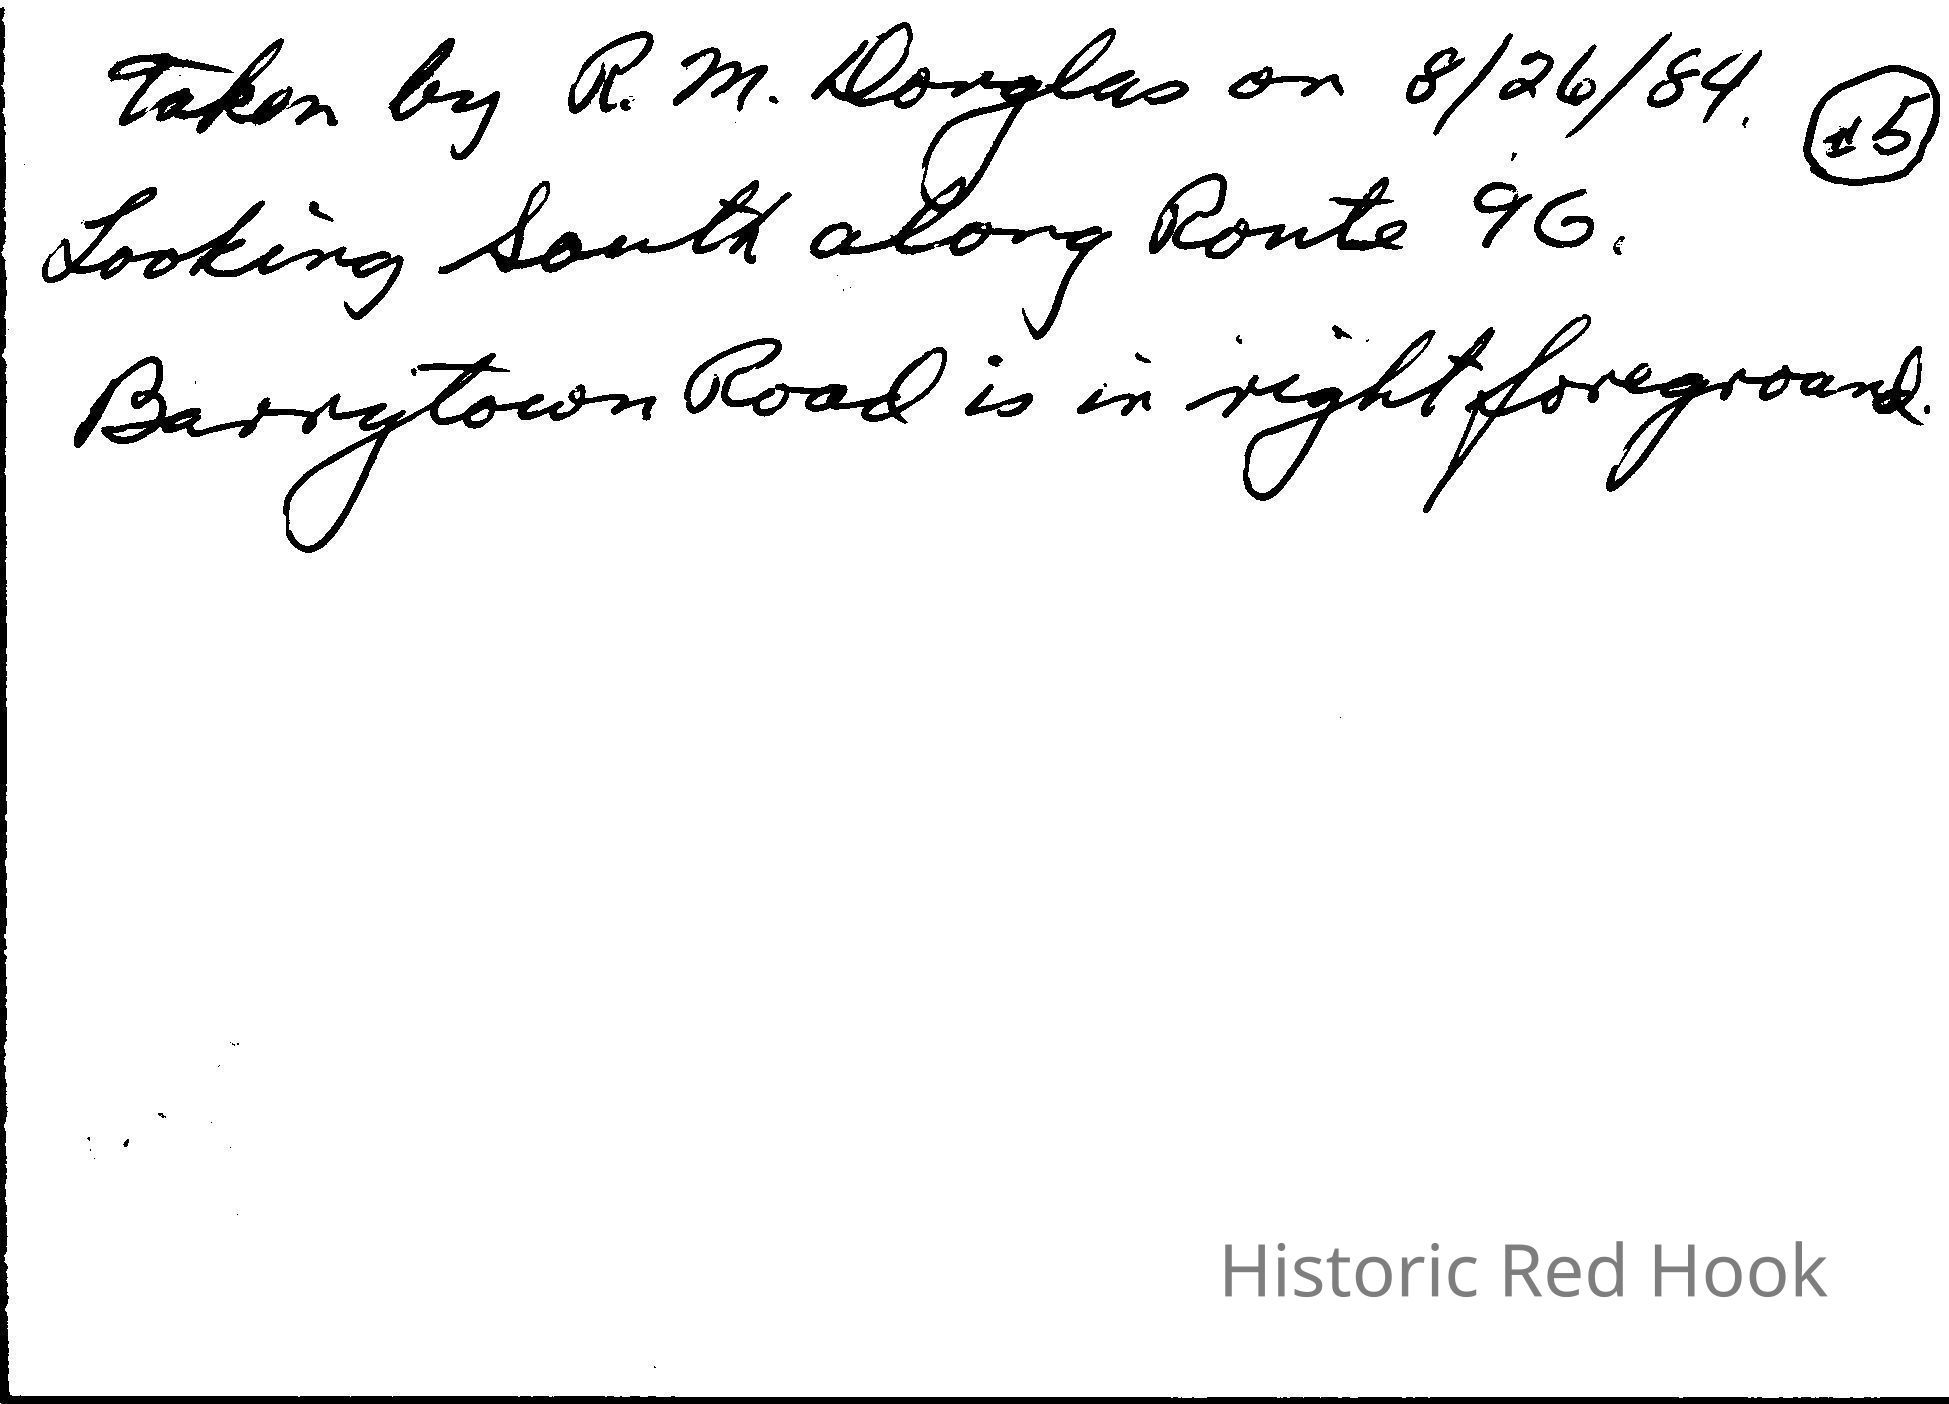 Taken by R. M. Douglas on 8/26/84. 15
Looking South along Route 9G.
Barrytown Road is in right foreground.
Historic Red Hook